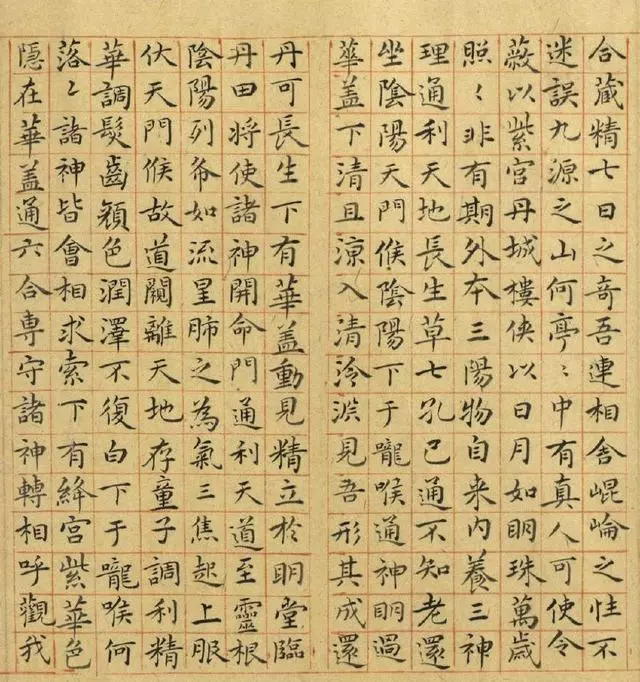 合藏精七日之奇吾連相舍崐崘之性不
迷誤九源之山何亭〻中有真人可使令
蔽以紫宮丹城樓俠以日月如眀珠萬歲
照〻非有期外本三陽物自来内養三神
理通利天地長生草七孔已通不知老還
坐陰陽天門候陰陽下于嚨喉通神眀過
華盖下清且涼入清泠淵見吾形其成還
丹可長生下有華盖動見精立於眀堂臨
丹田将使諸神開命門通利天道至靈根
陰陽列布如流星肺之為氣三焦起上服
伏天門候故道闚離天地存童子調利精
華調髮齒顔色潤澤不復白下于嚨喉何
落〻諸神皆會相求索下有絳宮紫華色
隱在華盖通六合専守諸神轉相呼觀我